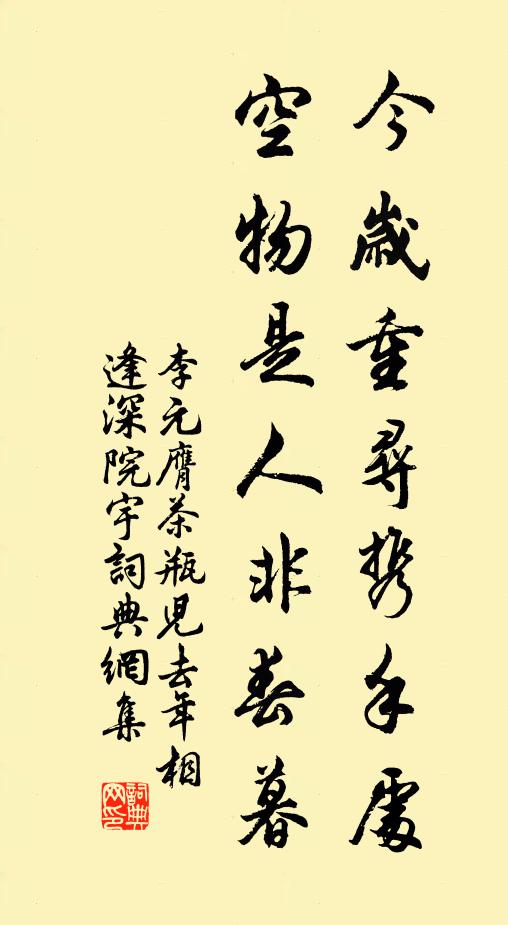 今歲重尋携手處
空物是人非春暮
李元膺茶瓶兒去年相
逢深院宇詞典網集
詞典
网印